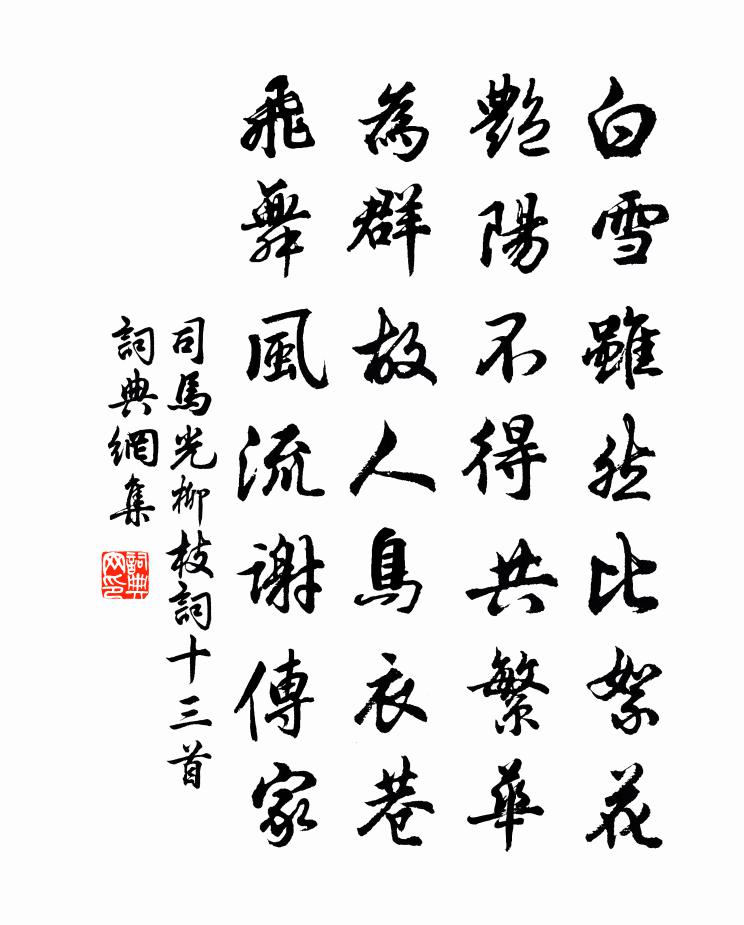 白雪雖然比絮花
艷陽不得共繁華
為群故人烏衣巷
飛舞風流謝傳家
司馬光柳枝詞十三首
詞典網集
詞典网印